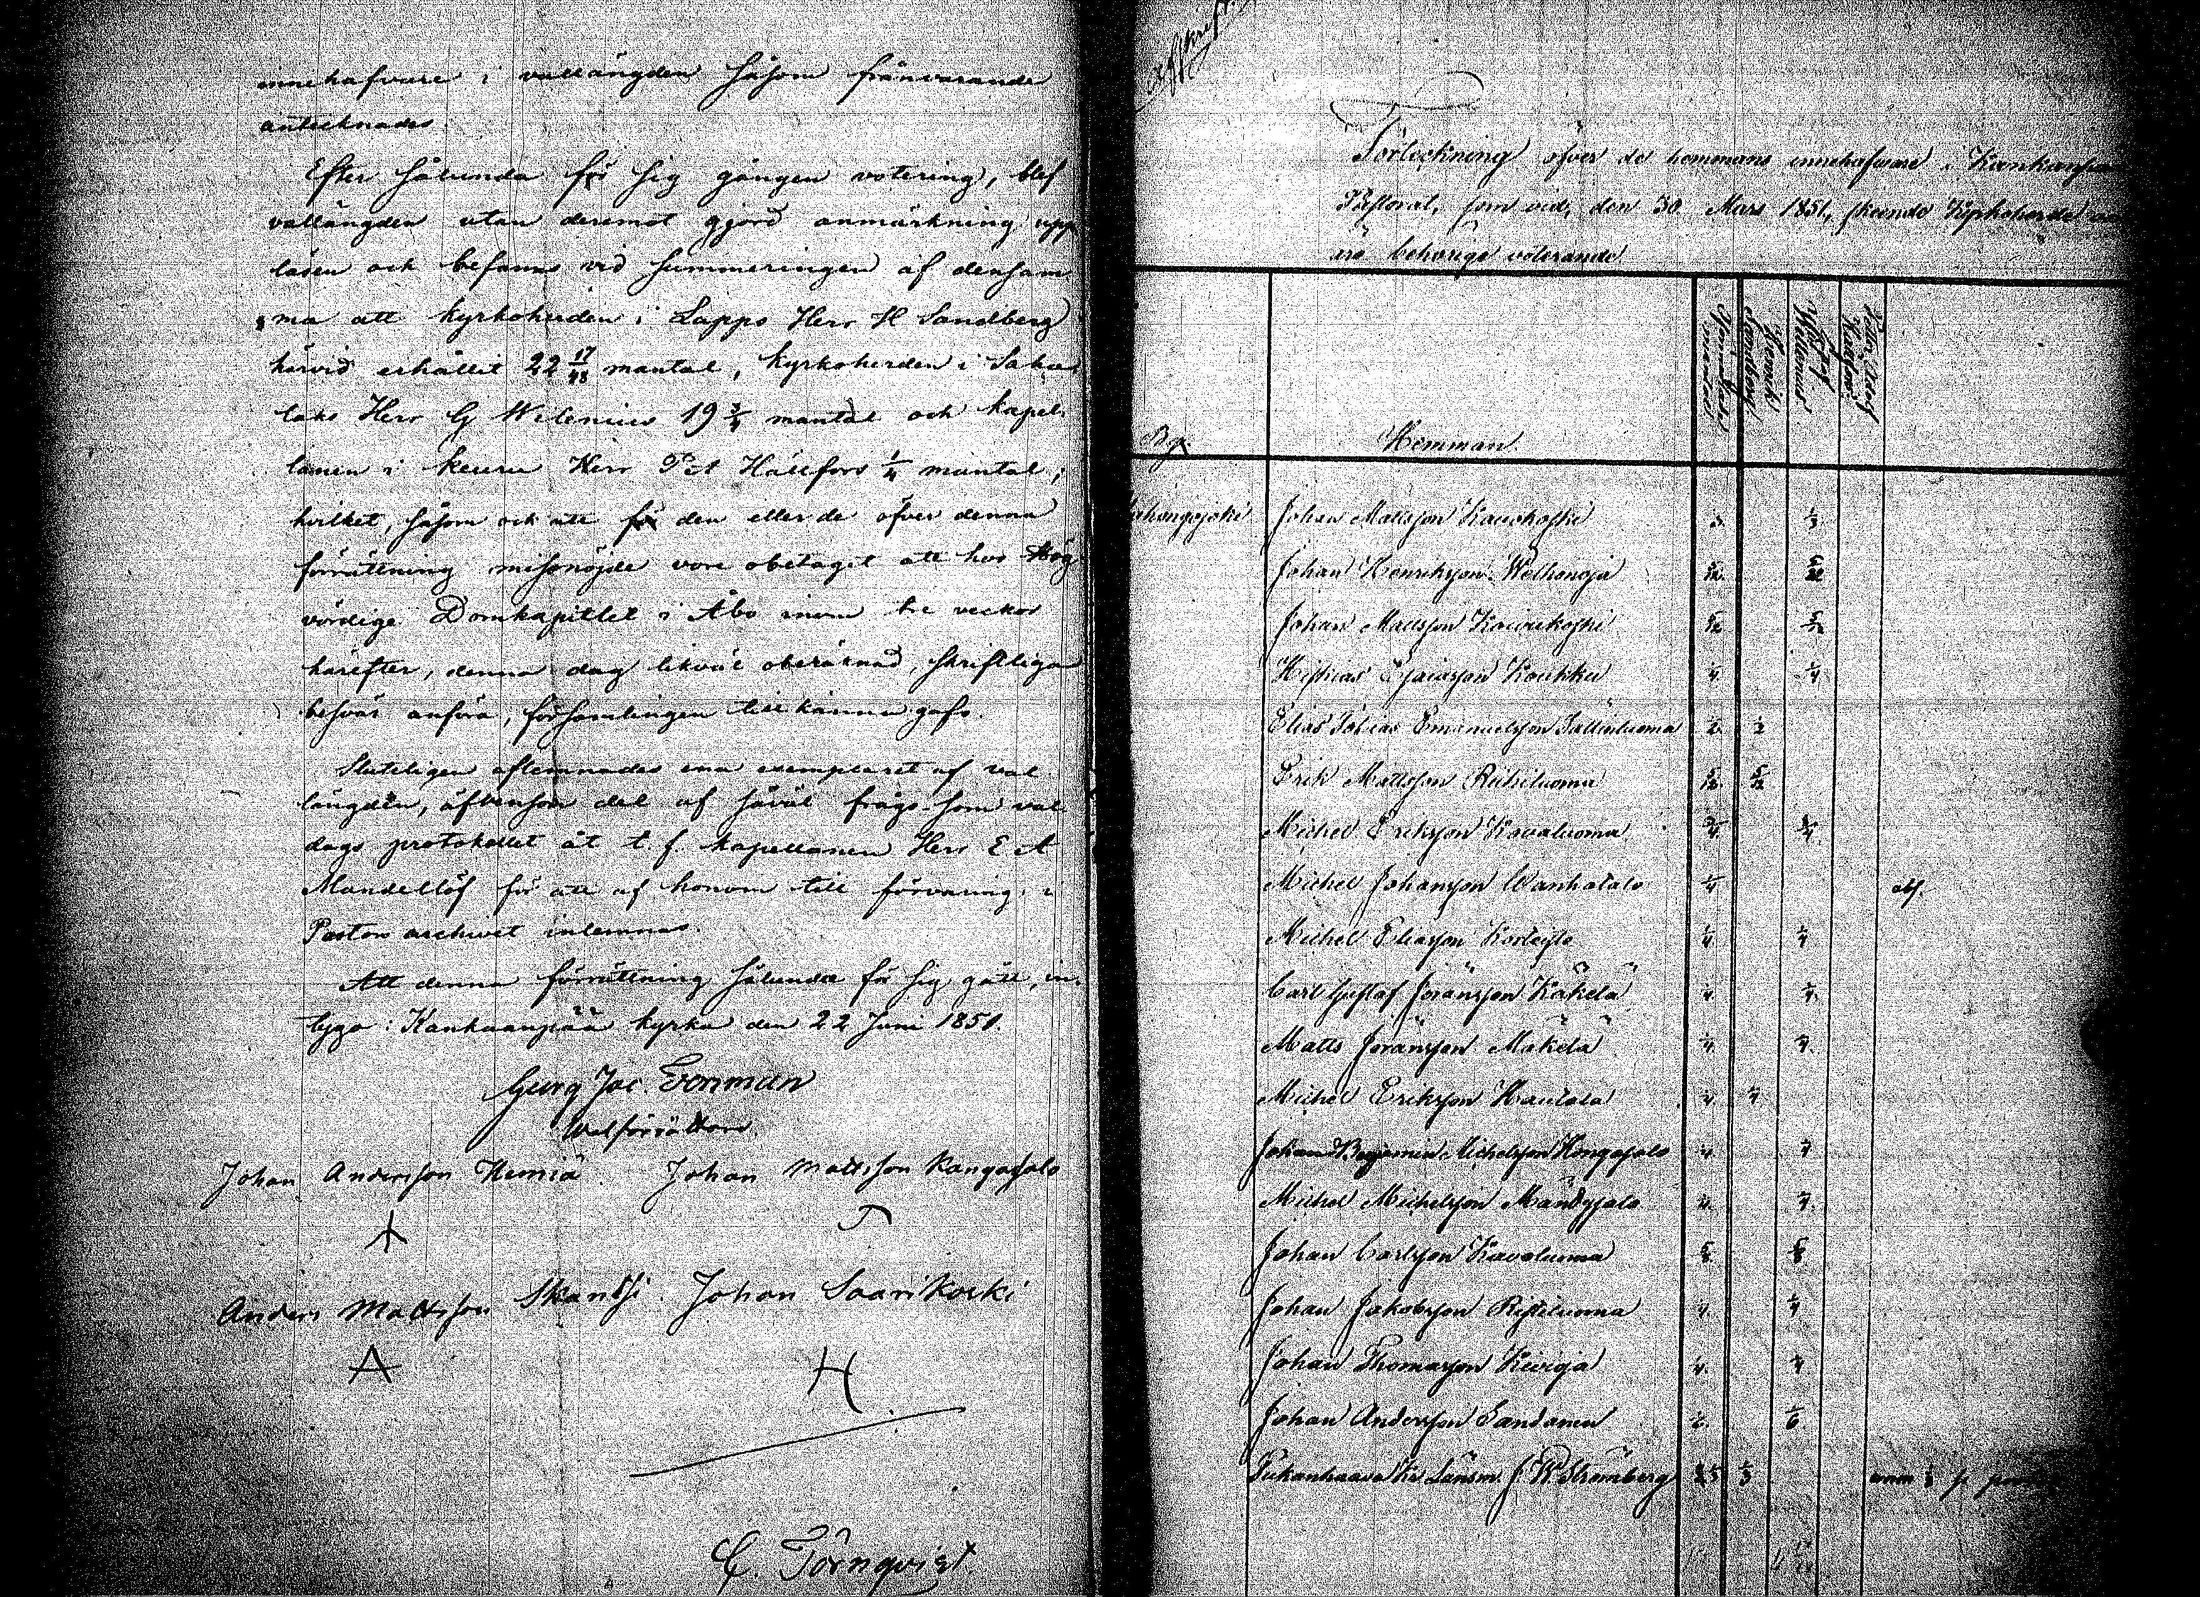 innehafvare i vallängden såsom frånvarande
antecknades.
Efter sålunda för sig gången votering, blef
vallängden utan deremot gjord anmärkning upp
läsen och befanns vid summeringen af densam
ma att kyrkoherden i Lappo Herr H Sandberg
härvid erhållit 22 17/48 mantal, kyrkoherden i Saha
laks Herr G Wilenius 19 3/4 mantal och kapel
lanen i Keuru Herr P A Hällfors 1/4 mantal;
hvilket, såsom och att för den eller de öfver denna
förrättning missnöjde vore obetaget att hos Hög
vördige Domkapitlet i Åbo inom tre veckor
härefter, denna dag likväl oberäknad, skriftliga
besvär anföra, församlingen tillkänna gafs.
Sluteligen aflemnades ena exemplaret af val
längden, äfvensom del af såväl frågo som val
dags protokollet åt t. f. kapellanen Herr E A
Mandellöf för att af honom till förvaring i
Pastors archivet inlemnas.
Att denna förrättning sålunda för sig gått, in
tyga: Kankaanpää kyrka den 22 Juni 1851.
Georg Jac.
Valförrättare.
Johan Andersson Hemiä Johan Mattsson Kangasalo
Anders Mattsson Skantsi. Johan Saarikoski
A H
C. Törnqvist
Afskrift.
Förteckning öfver de hemmans innehafvare i
Pastorat, som vid, den 30 Mars 1851, skeende Kyrkoherde
äro behörige voterande
Henrik Sandberg
Gustaf Wilenius
By. Hemman.
Johan Mattsson Kauokoski 1/3
Johan Henriksson Welhonoja 5/12
Johan Mattsson Kauokoski 5/12
Hiskias Esaiasson Koukku 1/4 1/4
Elias Tobias Emanuelsson 1/2 1/2
Erik Mattsson Riihiluoma 5/12 5/12
Michel Eriksson Kovaluoma 3/4 3/4
Michel Johansson Wanhatalo 1/4 abs.
Michel Eliasson 1/4 1/4
Carl Gustaf Jöransson Käkelä 1/4 1/4
Matts Jöransson Mäkelä 1/4 1/4
Michel Eriksson Hautala 1/4 1/4
Johan Benjamin Michelsson Hongasalo 1/4 1/4
Michel Michelsson Mändysalo 1/4 1/4
Johan Carlsson Kovaluoma 5/8 5/8
Johan Jakobsson Ristiluoma 1/4 1/4
Johan Thomasson Kivioja 1/4 1/4
Johan Andersson Sandanen 1/6 1/6
Länsm. J. W. Strömberg 1/3